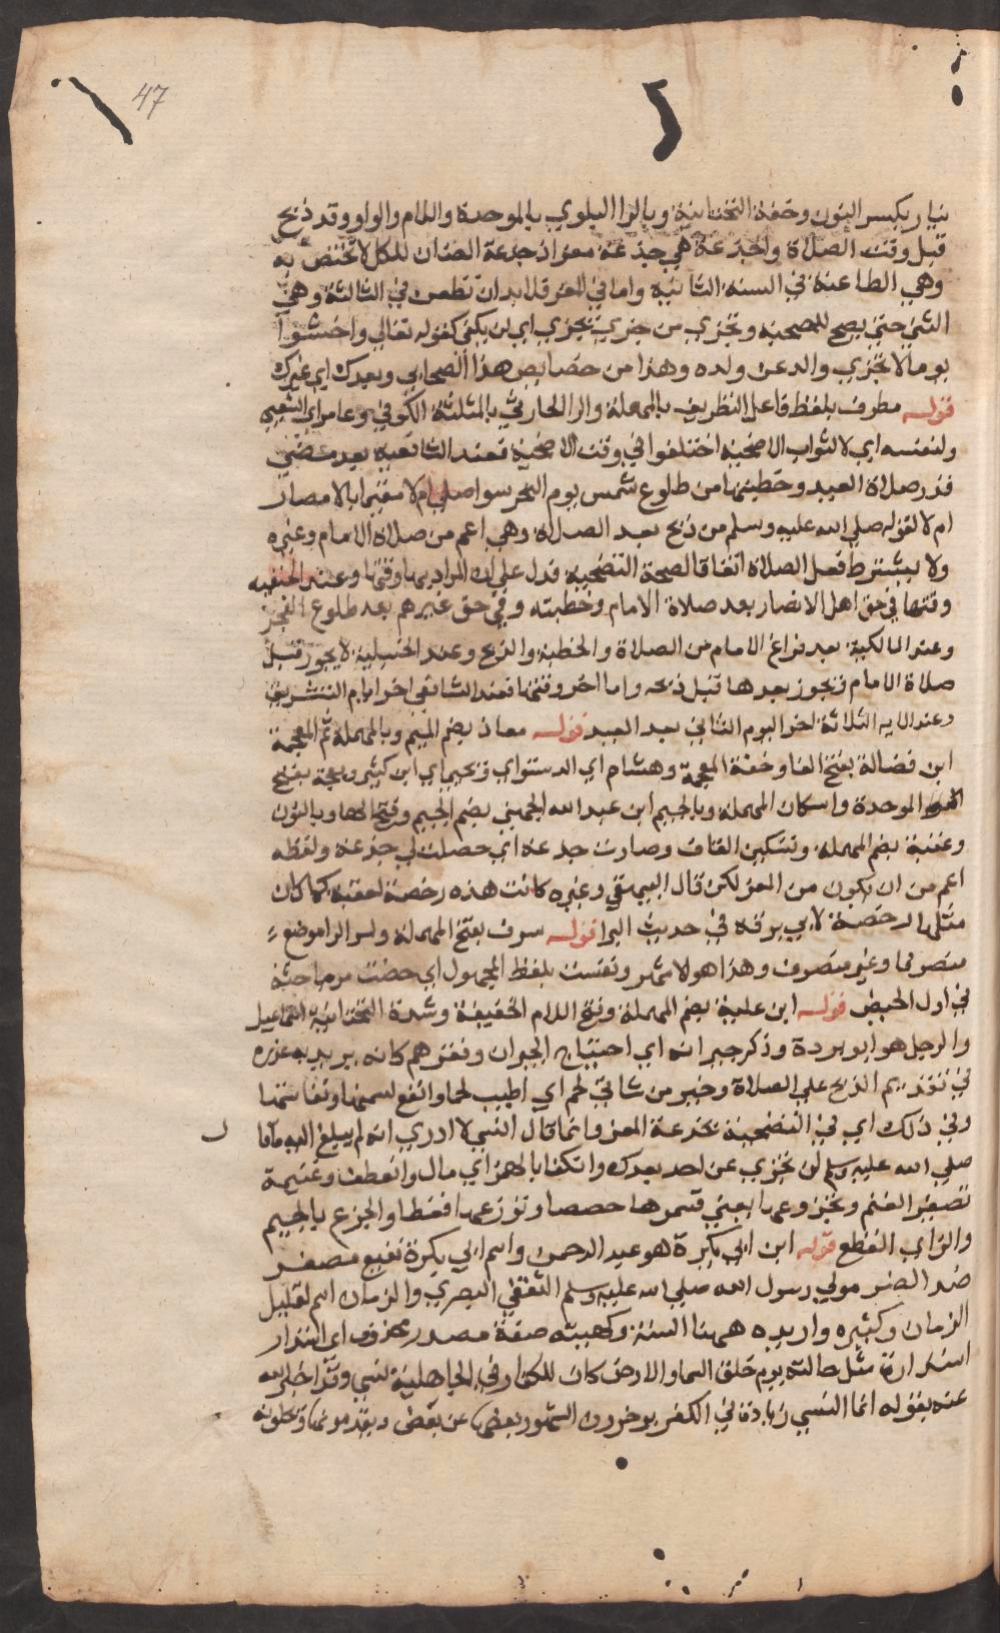 47
نيار بكسر النون وخفة التحتانية وبالرا البلوي بالموحدة واللام والواو وقد ذبح
قبل وقت الصلاة والجذعة هي جذعة معز اذ جذعة الضان للكل لا تختص به
وهي الطاعنة في السنه الثانيه واما في المعز فلا بد ان تطعن في الثالثة وهي
الثني حتى يصح للتضحيه وتجزي من جزي يجزي اي لن يكفي كقوله تعالي واخشوا
يوما لا يجزي والد عن ولده وهذا من خصايص هذا الصحابي وبعدك اي غيرك
قوله مطرف بلفظ فاعل التطريف بالمهملة والرا الحارثي بالمثلثة الكوفي وعامر اي الشعبي
ولنفسه اي لا لثواب الاضحية اختلفوا في وقت الاضحية فعند الشافعيه بعد مضي
قدر صلاة العيد وخطبتها من طلوع شمس يوم النحر سوا صلي ام لا مقيما بالامصار
ام لا لقوله صلي الله عليه وسلم من ذبح بعد الصلاة وهي اعم من صلاة الامام وغيره
ولا يشترط فعل الصلاة اتفاقا لصحة التضحية فدل علي ان المراد بها وقتها وعند الحنفيه
وقتها في حق اهل الامصار بعد صلاة الامام وخطبته وفي حق غيرهم بعد طلوع الفجر
وعند المالكية بعد فراغ الامام من الصلاة والخطبة والذبح وعند الحنبلية لا يجوز قبل
صلاة الامام ويجوز بعدها قبل ذبحه واما اخر وقتها فعند الشافعي اخر ايام التشريق
وعند الايه الثلاثة اخر اليوم الثاني بعد العيد قوله معاذ بضم الميم وبالمهملة ثم المعجمة
ابن فضالة بفتح الفا وخفة المعجمة وهشام اي الدستواي ويحيي اي ابن كثير وبعجة بفتح
الموحدة واسكان المهملة وبالجيم ابن عبد الله الجهني بضم الجيم وفتح الها وبالنون
وعقبة بضم المهملة وتسكين القاف وصارت جدعة اي حصلت لي جذعة ولفظه
اعم من ان يكون من المعز لكن قال البيهقي وغيره كانت هذه رخصة لعقبة كما كان
مثلها رخصة لابي بردة في حديث البرا قوله سرف بفتح المهملة وكسر الرا موضع
منصرفا وغير منصرف وهذا هو الاشهر ونفست بلفظ المجهول اي حضت مر مباحثه
في اول الحيض قوله ابن علية بضم المهملة وفتح اللام الخفيفة وشدة التحتانية اسماعيل
والرجل هو ابو بردة وذكر جيرانه اي احتياج الجيران وفقرهم كانه يريد به عذره
في تقديم الذبح علي الصلاة وخير من شاتي لحم اي اطيب لحما وانفع لسمنها ونفاستها
وفي ذلك اي في التضحية بجذعة المعز وانما قال النبي لا ادري انه لم يبلغ اليه ما قال
صلي الله عليه وسلم لن تجزي عن احد بعدك وانكفا بالهمز اي مال وانعطف وغنيمة
تصغير الغنم وتجزعوها يعني قسموها حصصا وتوزعها قطعا والجزع بالجيم
والزاي القطع قوله ابن ابي بكرة هو عبد الرحمن واسم ابي بكرة نفيع مصغر
ضد الضر مولي رسول الله صلي الله عليه وسلم الثقفي البصري والزمان اسم لقليل
الزمان وكثيره واريد به ههنا السنة وكهيئته صفة مصدر محذوف اي استدار
استدارة مثل حالته يوم خلق السما والارض كان للكفار في الجاهلية نسي وقد اخبر الله
عنه بقوله انما النسي زيادة في الكفر يوخرون الشهور بعضها عن بعض ويقدمونها ويحلونه